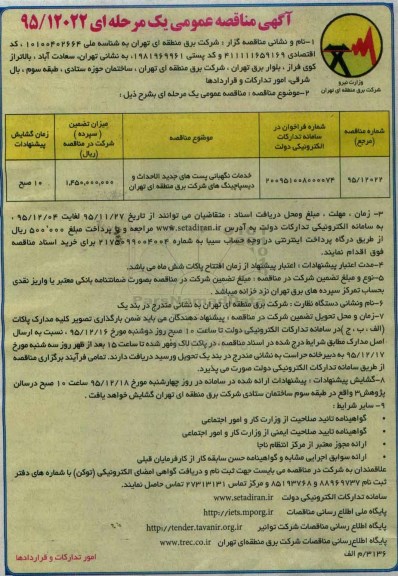 آگهی مناقصه عمومی یک مرحله ای ۹۵/۱۲۰۲۲
وزارت نیرو
شرکت برق منطقه ای تهران
۱-نام و نشانی مناقصه گزار : شرکت برق منطقه ای تهران به شناسه ملی ۱۰۱۰۰۴۰۲۶۶۴ ، کد
اقتصادی ۴۱۱۱۱۱۶۵۹۱۶۹ و کد پستی ۱۹۸۱۹۶۹۹۶۱، به نشانی تهران، سعادت آباد ، بالاتراز
کوی فراز، بلوار برق تهران ، شرکت برق منطقه ای تهران ، ساختمان حوزه ستادی ، طبقه سوم ، بال
شرقی، امور تدارکات و قراردادها
۲-موضوع مناقصه : مناقصه عمومی یک مرحله ای بشرح ذیل :
شماره مناقصه (مرجع)
شماره فراخوان در سامانه تدارکات الکترونیکی دولت
موضوع مناقصه
میزان تضمین (سپرده) شرکت در مناقصه (ریال)
زمان گشایش پیشنهادات
۹۵/۱۲۰۲۲
۲۰۰۹۵۱۰۰۸۰۰۰۰۷۴
خدمات نگهبانی پست های جدید الاحداث و دیسپاچینگ های شرکت برق منطقه ای تهران
۱,۴۵۰,۰۰۰,۰۰۰
۱۰ صبح
۳- زمان ، مهلت ، مبلغ ومحل دریافت اسناد : متقاضیان می توانند از تاریخ ۹۵/۱۱/۲۷ لغایت ۹۵/۱۲/۰۴ ،
به سامانه الکترونیکی تدارکات دولت به آدرس www.setadiran.ir مراجعه و با پرداخت مبلغ ۵۰۰٬۰۰۰ ریال
از طریق درگاه پرداخت اینترنتی در وجه حساب سیبا به شماره ۲۱۷۵۰۹۹۰۰۴۰۰۴ برای خرید اسناد مناقصه
فوق اقدام نمایند.
۴-مدت اعتبار پیشنهادات : اعتبار پیشنهاد از زمان افتتاح پاکات شش ماه می باشد.
۵-نوع و مبلغ تضمین شرکت در مناقصه : مبلغ تضمین شرکت در مناقصه بصورت ضمانتنامه بانکی معتبر یا واریز نقدی
بحساب تمرکز سپرده های برق تهران نزد خزانه میباشد
۶-نام ونشانی دستگاه نظارت : شرکت برق منطقه ای تهران به نشانی مندرج در بند یک
۷-زمان و محل تحویل تضمین شرکت در مناقصه : پیشنهاد دهندگان می باید ضمن بارگذاری تصویر کلیه مدارک پاکات
(الف ، ب ، ج )در سامانه تدارکات الکترونیکی دولت تا ساعت ۱۰ صبح روز دوشنبه مورخ ۹۵/۱۲/۱۶ ، نسبت به ارسال
اصل مدارک مطابق شرایط درج شده در اسناد مناقصه ، در پاکت لاک ومُهر شده تا ساعت ۱۵ بعد از ظهر روز سه شنبه مورخ
۹۵/۱۲/۱۷ به دبیرخانه حراست به نشانی مندرج در بند یک تحویل ورسید دریافت دارند. تمامی فرآیند برگزاری مناقصه
از طریق سامانه تدارکات الکترونیکی دولت صورت می پذیرد.
۸-گشایش پیشنهادات : پیشنهادات ارائه شده در سامانه در روز چهارشنبه مورخ ۹۵/۱۲/۱۸ ساعت ۱۰ صبح درسالن
پژوهش۳ واقع در طبقه سوم ساختمان ستادی شرکت برق منطقه ای تهران گشایش خواهد یافت .
۹- سایر شرایط :
• گواهینامه تائید صلاحیت از وزارت کار و امور اجتماعی
• گواهینامه تائید صلاحیت ایمنی از وزارت کار و امور اجتماعی
• ارائه مجوز معتبر از مرکز انتظام ناجا
• ارائه سوابق اجرایی مشابه و گواهینامه حسن سابقه کار از کارفرمایان قبلی
علاقمندان به شرکت در مناقصه می بایست جهت ثبت نام و دریافت گواهی امضای الکترونیکی (توکن) با شماره های دفتر
ثبت نام ۸۸۹۶۹۷۳۷ و ۸۵۱۹۳۷۶۸ و مرکز تماس ۲۷۳۱۳۱۳۱ تماس حاصل نمایند.
سامانه تدارکات الکترونیکی دولت www.setadiran.ir
پایگاه ملی اطلاع رسانی مناقصات http://iets.mporg.ir
پایگاه اطلاع رسانی مناقصات شرکت توانیر http://tender.tavanir.org.ir
پایگاه اطلاع‌رسانی مناقصات شرکت برق منطقه‌ای تهران www.trec.co.ir
۳۱۳۶/م الف
امور تدارکات و قراردادها